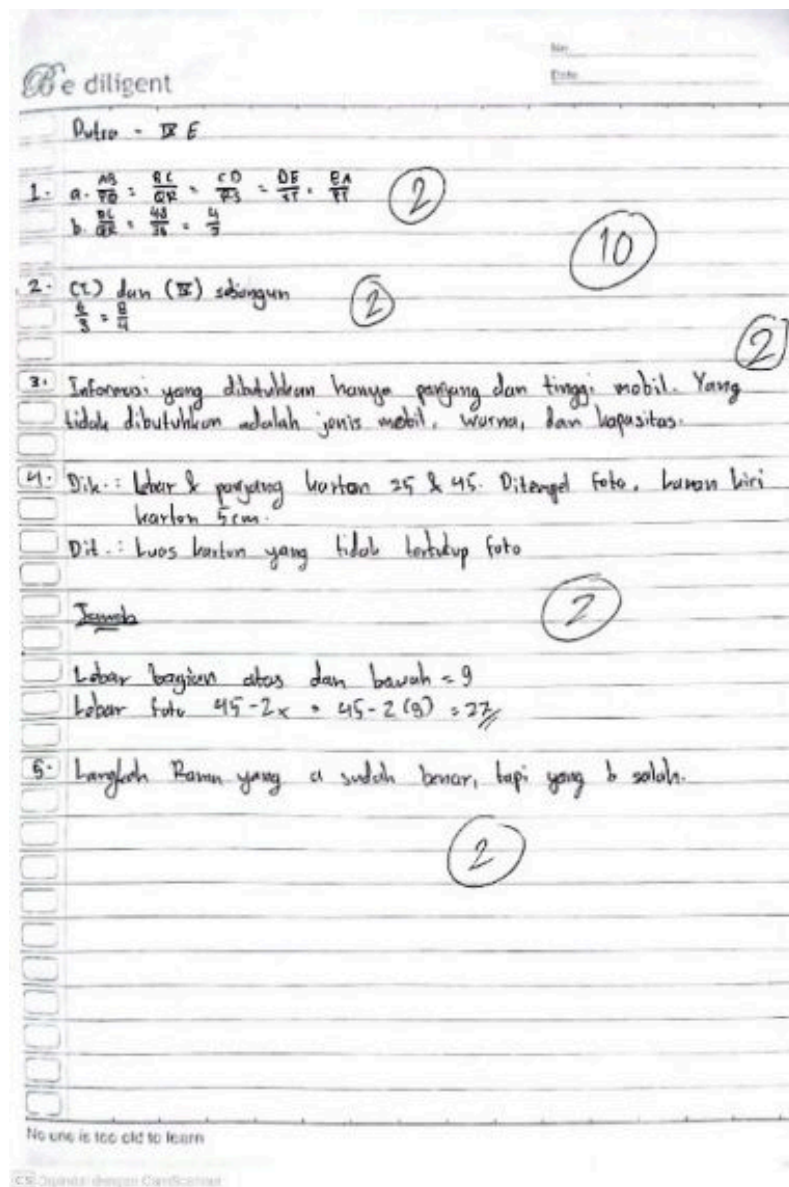 No.
Date
Be diligent
Putra - IX E
1. a. AB/PQ = BC/QR = CD/RS = DE/ST = EA/PT
2
b. BC/QR = 48/36 = 4/3
10
2. (I) dan (IV) sebangun
6/3 = 8/4
2
2
3. Informasi yang dibutuhkan hanya panjang dan tinggi mobil. Yang
tidak dibutuhkan adalah jenis mobil, warna, dan kapasitas.
4. Dik.: Lebar & panjang karton 25 & 45. Ditempel foto, kanan kiri
karton 5 cm.
Dit.: Luas karton yang tidak tertutup foto
Jawab
2
Lebar bagian atas dan bawah = 9
Lebar foto 45-2x = 45-2(9) = 27
5. Langkah yang a sudah benar, tapi yang b salah.
2
No one is too old to learn
CS Dipindai dengan CamScanner